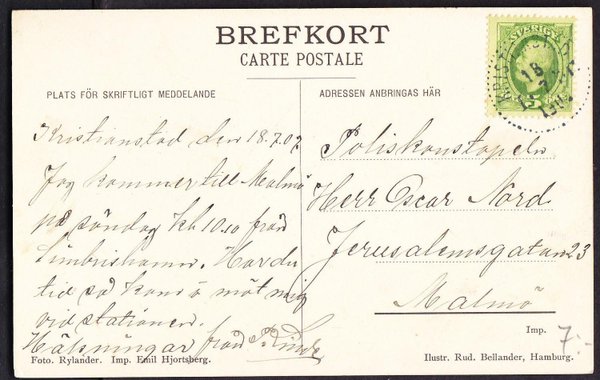 BREFKORT
CARTE POSTALE
PLATS FÖR SKRIFTLIGT MEDDELANDE
ADRESSEN ANBRINGAS HÄR
SVERIGE
5
Kristianstad den 18.7.07
Jag kommer till Malmö
på söndag kl 10.10 från
Simbrishamn. Har du
tid så kom o möt mig
vid stationen.
Hälsningar från
Poliskonstapeln
Herr Oscar Nord
Jerusalemsgatan 23
Malmö
Imp.
7:-
Foto. Rylander. Imp. Emil Hjortsberg.
Ilustr. Rud. Bellander, Hamburg.